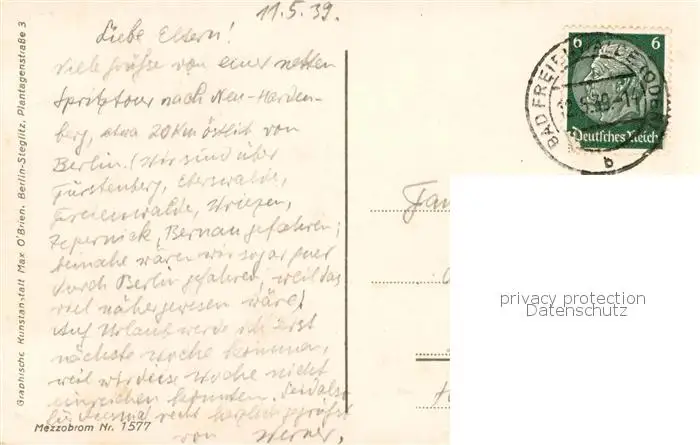 11.5.39.
Liebe Eltern!
Viele Grüße von einer netten
Spritztour nach Neu-Harden-
berg, etwa 20 Km östlich von
Berlin. (Wir sind über
Fürstenberg, Eberswalde,
Freienwalde, Wriezen,
Zepernick, Bernau gefahren;
beinahe wären wir sogar quer
durch Berlin gefahren, weil das
viel näher gewesen wäre)
Auf Urlaub werde ich erst
nächste Woche kommen,
weil wir diese Woche nicht
einreichen konnten. Seid also
für diesmal recht herzlich gegrüßt
von Werner.
Graphische Kunstanstalt Max O'Brien, Berlin-Steglitz, Plantagenstraße 3
Mezzobrom Nr. 1577
6 6
Deutsches Reich
BAD FREIENWALDE (ODER)
b
privacy protection
Datenschutz